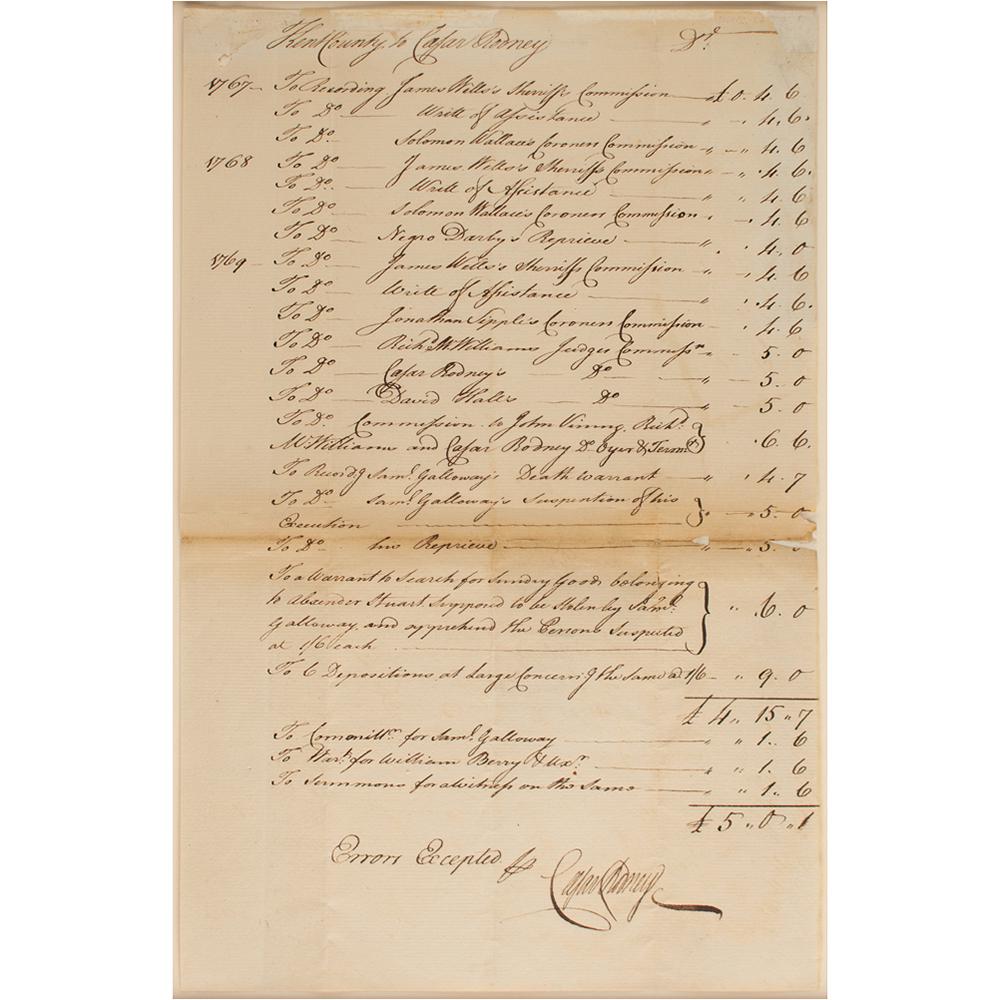 Kent County to Cæsar Rodney Dr.
1767 — To Recording James Wells's Sheriffs Commission — £ 0. 4. 6
To Do — Writt of Assistance — " - 4. 6.
To Do. Solomon Wallace's Coroners Commission - " - " 4. 6
1768 To Do — James Wells's Sheriffs Commission " - " 4. 6.
To Do. — Writt of Assistance — " " 4. 6
To Do — Solomon Wallace's Coroners Commission . - 4. 6
To Do — Negro Darby's Reprieve — " . 4. 0
1769 — To Do — James Wells's Sheriffs Commission - " - 4. 6
To Do — Writt of Assistance — " . 4. 6.
To Do — Jonathan Sipple's Coroners Commission - . 4. 6
To Do — Richd. McWilliams Judges Commissn. " - 5. 0
To Do — Cæsar Rodney's — Do — " - 5. 0
To Do — David Hall's Do — " 5. 0
To Do. Commission to John Vining, Richd.
McWilliams and Cæsar Rodney De Oyer & Termr. } . 6. 6.
To Recordg Saml. Galloway's Death Warrant — " . 4. 7
To Do — Saml. Galloway's Suspention of his
Execution — } " - 5. 0
To Do. his Reprieve — " - 5.
To a Warrant to Search for Sundry Goods belonging
to Alexender Stuart, Supposed to be Stolen by Saml.
Galloway, and apprehend the Persons Suspected
at 1/6 each — } " . 6. 0
To 6 Depositions at Large Concerng the Same at 1/6 — " 9. 0
£ 4 " 15 " 7
To Commitmr. for Saml. Galloway — " " 1. 6
To Wart. for William Berry & Uxr. — " " 1. 6
To Summons for a Witness on the Same — " " 1. 6
£ 5 " 0 " 1
Errors Excepted
Cæsar Rodney